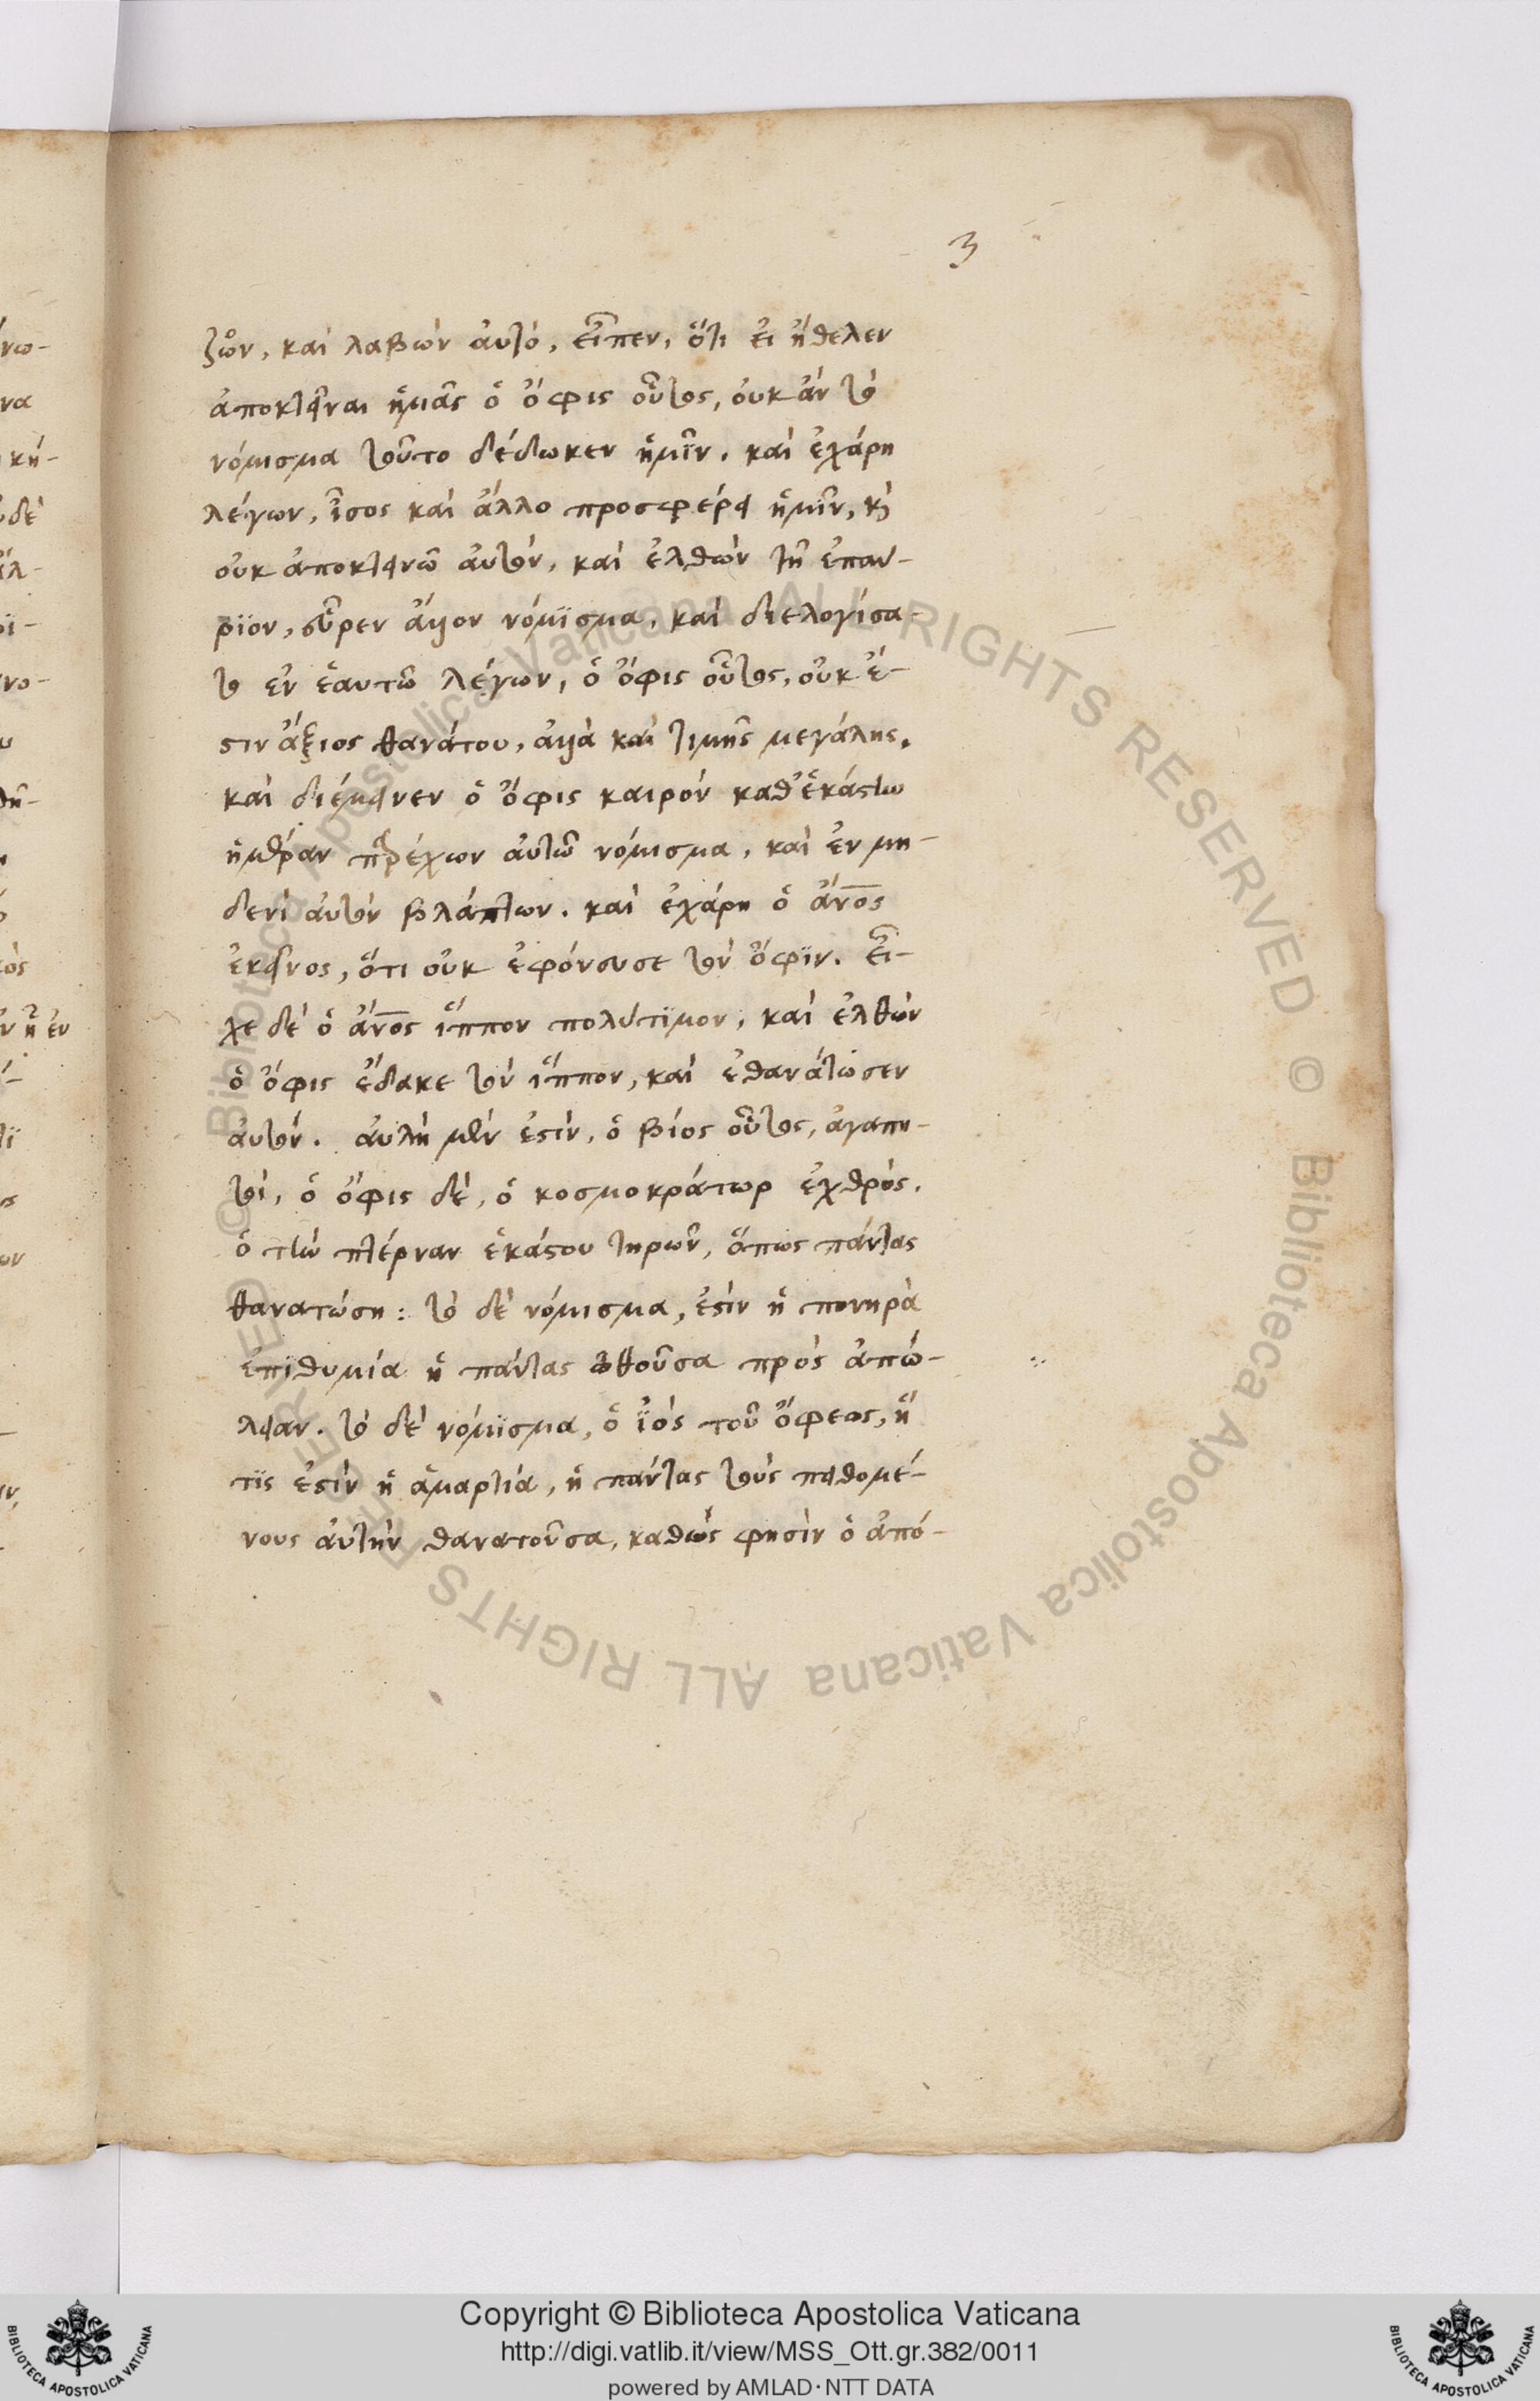 3
ζῶον, καὶ λαβὼν αὐτὸ, εἶπεν, ὅτι εἰ ἤθελεν
ἀποκτεῖναι ἡμᾶς ὁ ὄφις οὗτος, οὐκ ἂν τὸ
νόμισμα τοῦτο δέδωκεν ἡμῖν. καὶ ἐχάρη
λέγων, ἶσος καὶ ἄλλο προσφέρει ἡμῖν, κὶ
οὐκ ἀποκτεινῶ αὐτὸν, καὶ ἐλθὼν τῇ ἐπαύ-
ριον, εὗρεν ἄλλον νόμισμα, καὶ διελογίσα-
το ἐν ἑαυτῶ λέγων, ὁ ὄφις οὗτος, οὐκ ἔ-
στιν ἄξιος θανάτου, ἀλλὰ καὶ τιμῆς μεγάλης.
καὶ διέμεινεν ὁ ὄφις καιρὸν καθ' ἑκάστω
ἡμέραν παρέχων αὐτῶ νόμισμα, καὶ ἐν μη-
δενὶ αὐτὸν βλάπτων. καὶ ἐχάρη ὁ ἄνος
ἐκεῖνος, ὅτι οὐκ ἐφόνευσε τὸν ὄφϊν. εἶ-
χε δὲ ὁ ἄνος ἵππον πολύτιμον, καὶ ἐλθὼν
ὁ ὄφις ἔδακε τὸν ἵππον, καὶ ἐθανάτωσεν
αὐτόν. αὐλὴ μέν ἐστιν, ὁ βίος οὗτος, ἀγαπη-
τοὶ, ὁ ὄφις δὲ, ὁ κοσμοκράτωρ ἐχθρὸς.
ὁ τὴν πτέρναν ἑκάστου τηρῶν, ὅπως πάντας
θανατώση: τὸ δὲ νόμισμα, ἐστὶν ἡ πονηρὰ
ἐπιθυμία ἡ πάντας ὠθοῦσα πρὸς ἀπώ-
λειαν. τὸ δὲ νόμισμα, ὁ ἰὸς τοῦ ὄφεως, ἥ
τϊς ἐστὶν ἡ ἁμαρτία, ἡ πάντας τοὺς πειθομέ-
νους αὐτὴν θανατοῦσα, καθὼς φησὶν ὁ ἀπό-
Biblioteca Apostolica Vaticana ALL RIGHTS RESERVED © Biblioteca Apostolica Vaticana ALL RIGHTS RESERVED ©
Copyright © Biblioteca Apostolica Vaticana
http://digi.vatlib.it/view/MSS_Ott.gr.382/0011
powered by AMLAD·NTT DATA
BIBLIOTECA APOSTOLICA VATICANA
BIBLIOTECA APOSTOLICA VATICANA